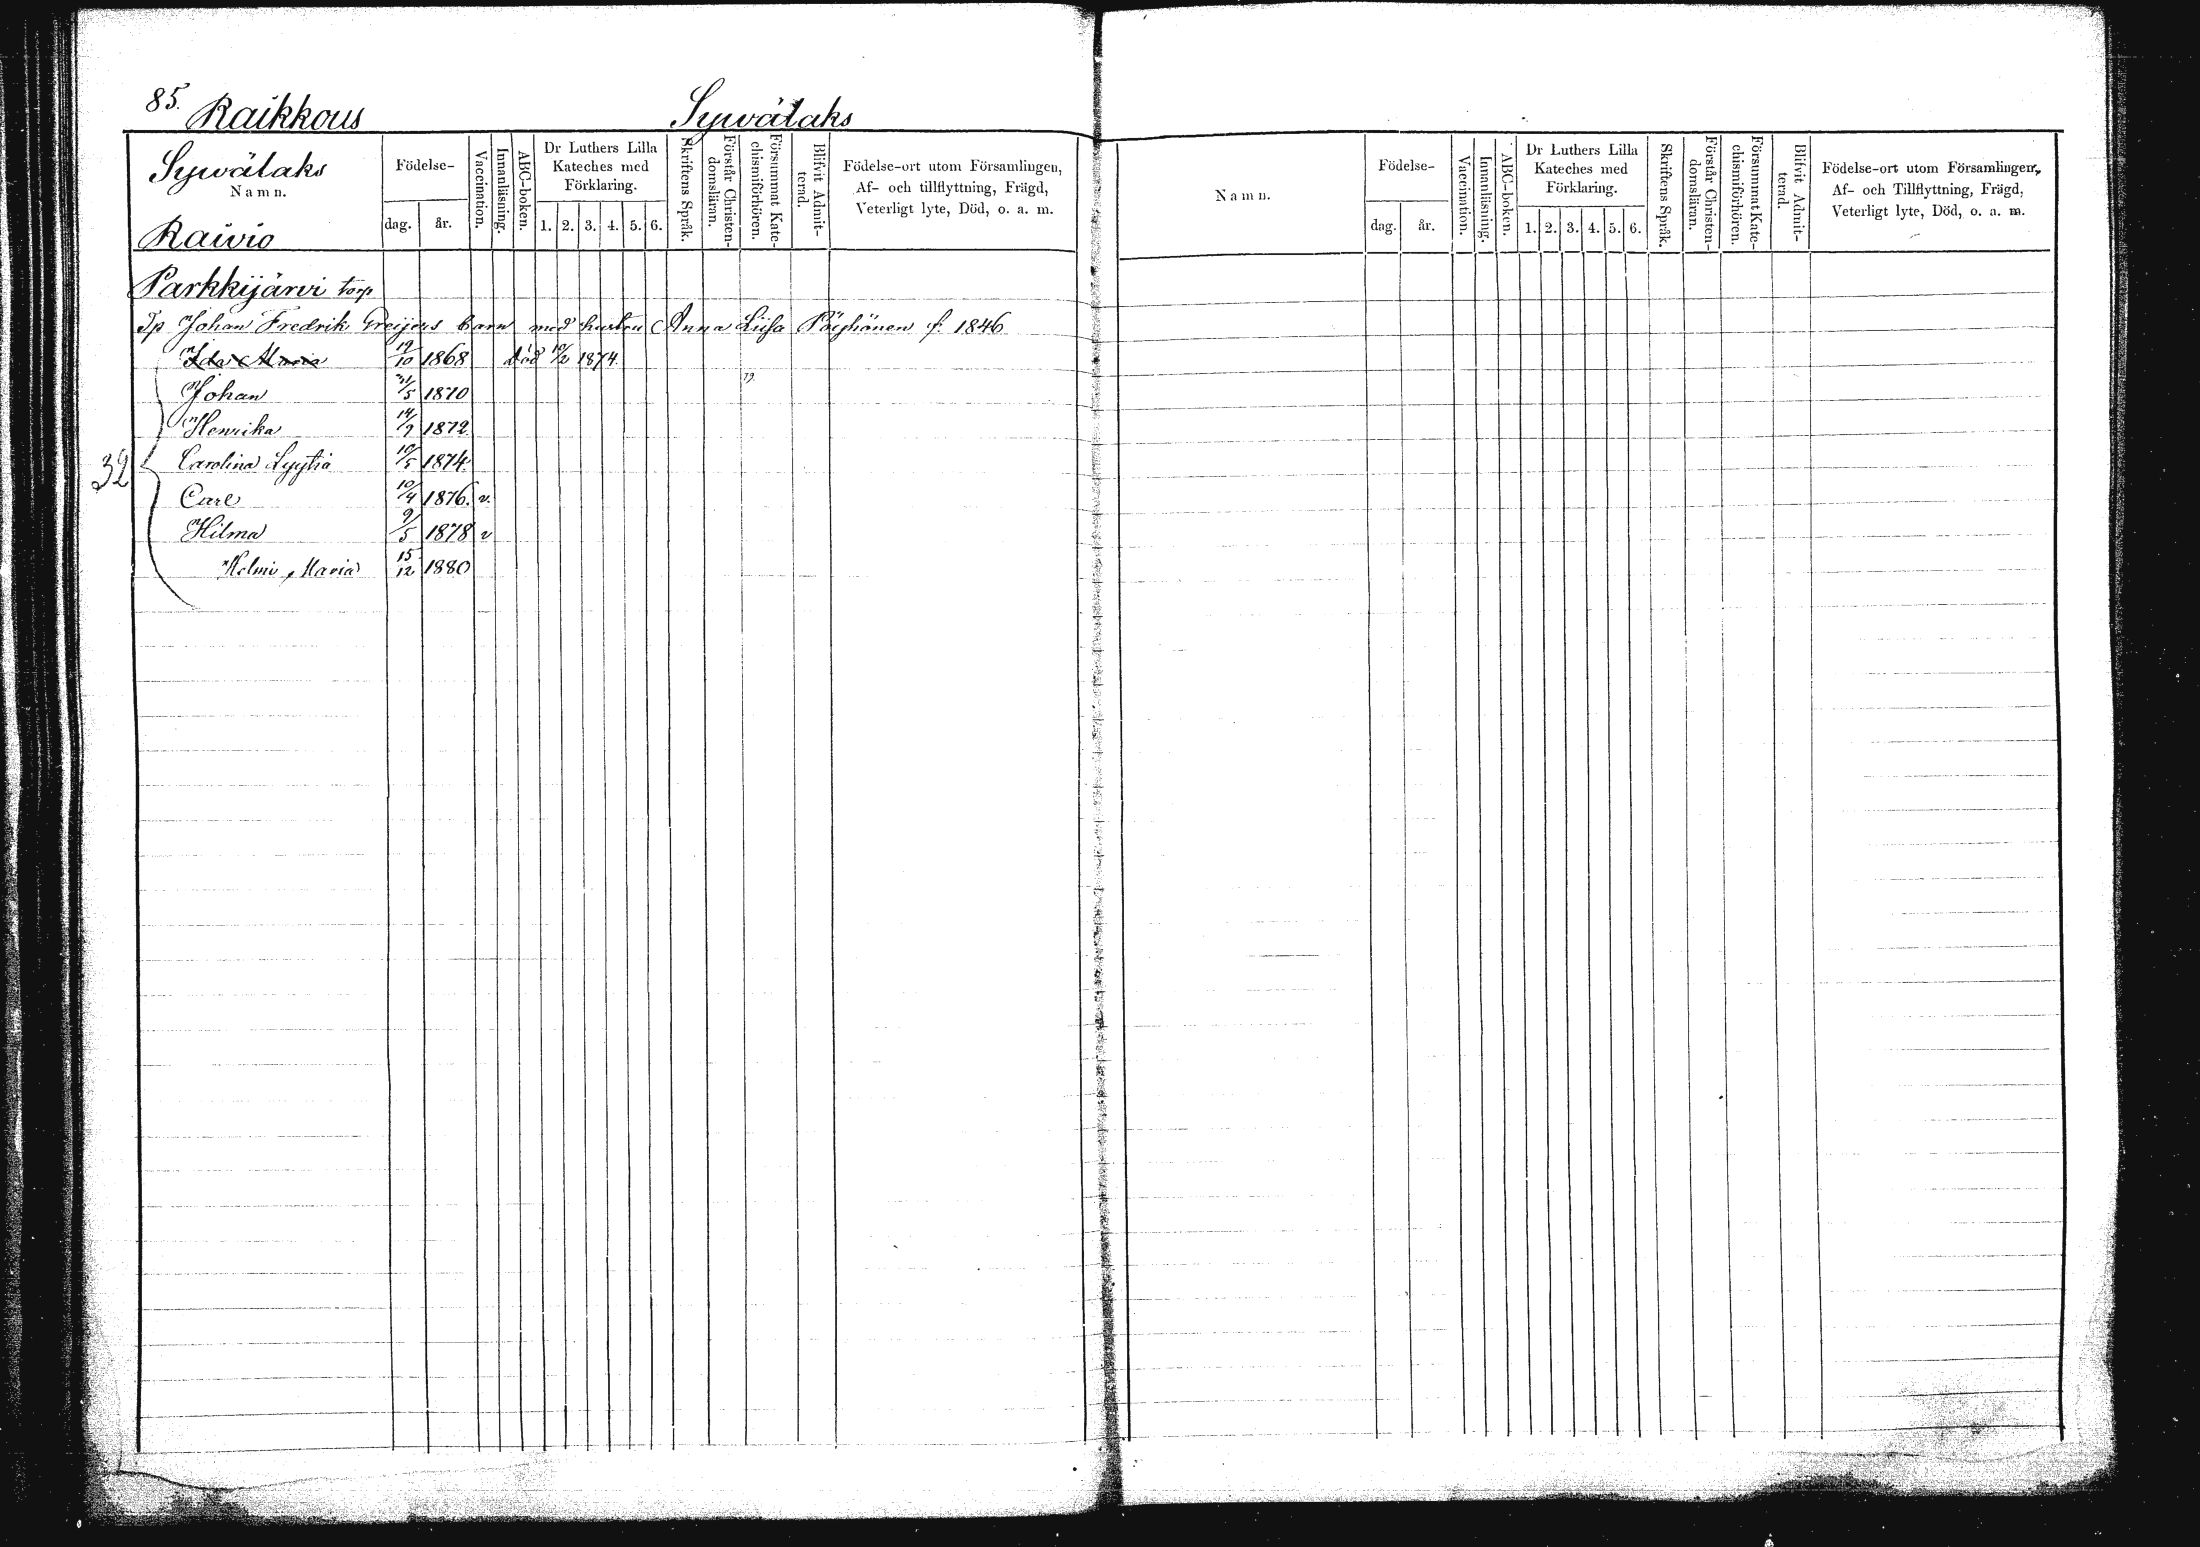 85. Raikkous Sywälaks
Sywälaks
Namn.
Raivio
Födelse-
dag. år.
Vaccination.
Innanläsning.
ABC-boken.
Dr Luthers Lilla
Kateches med
Förklaring.
1. 2. 3. 4. 5. 6.
Skriftens Språk.
Förstår Christen-
domsläran.
Försummat Kate-
chismiförhören.
Blifvit Admit-
terad.
Födelse-ort utom Församlingen,
Af- och tillflyttning, Frägd,
Veterligt lyte, Död, o. a. m.
Parkkijärvi torp
Tp Johan Fredrik Greijers barn med hustru C Anna Liisa Pöyhönen f. 1846
Ida Maria 19/10 1868 död 10/2 1874.
Johan 21/5 1870
Henrika 14/7 1872
Carolina Lyytia 10/5 1874.
32
Carl 10/4 1876. v.
Hilma 9/5 1878 v
Helmi Maria 15/12 1880
Namn.
Födelse-
dag. år.
Vaccination.
Innanläsning.
ABC-boken.
Dr Luthers Lilla
Kateches med
Förklaring.
1. 2. 3. 4. 5. 6.
Skriftens Språk.
Förstår Christen-
domsläran.
Försummat Kate-
chismiförhören.
Blifvit Admit-
terad.
Födelse-ort utom Församlingen,
Af- och Tillflyttning, Frägd,
Veterligt lyte, Död, o. a. m.